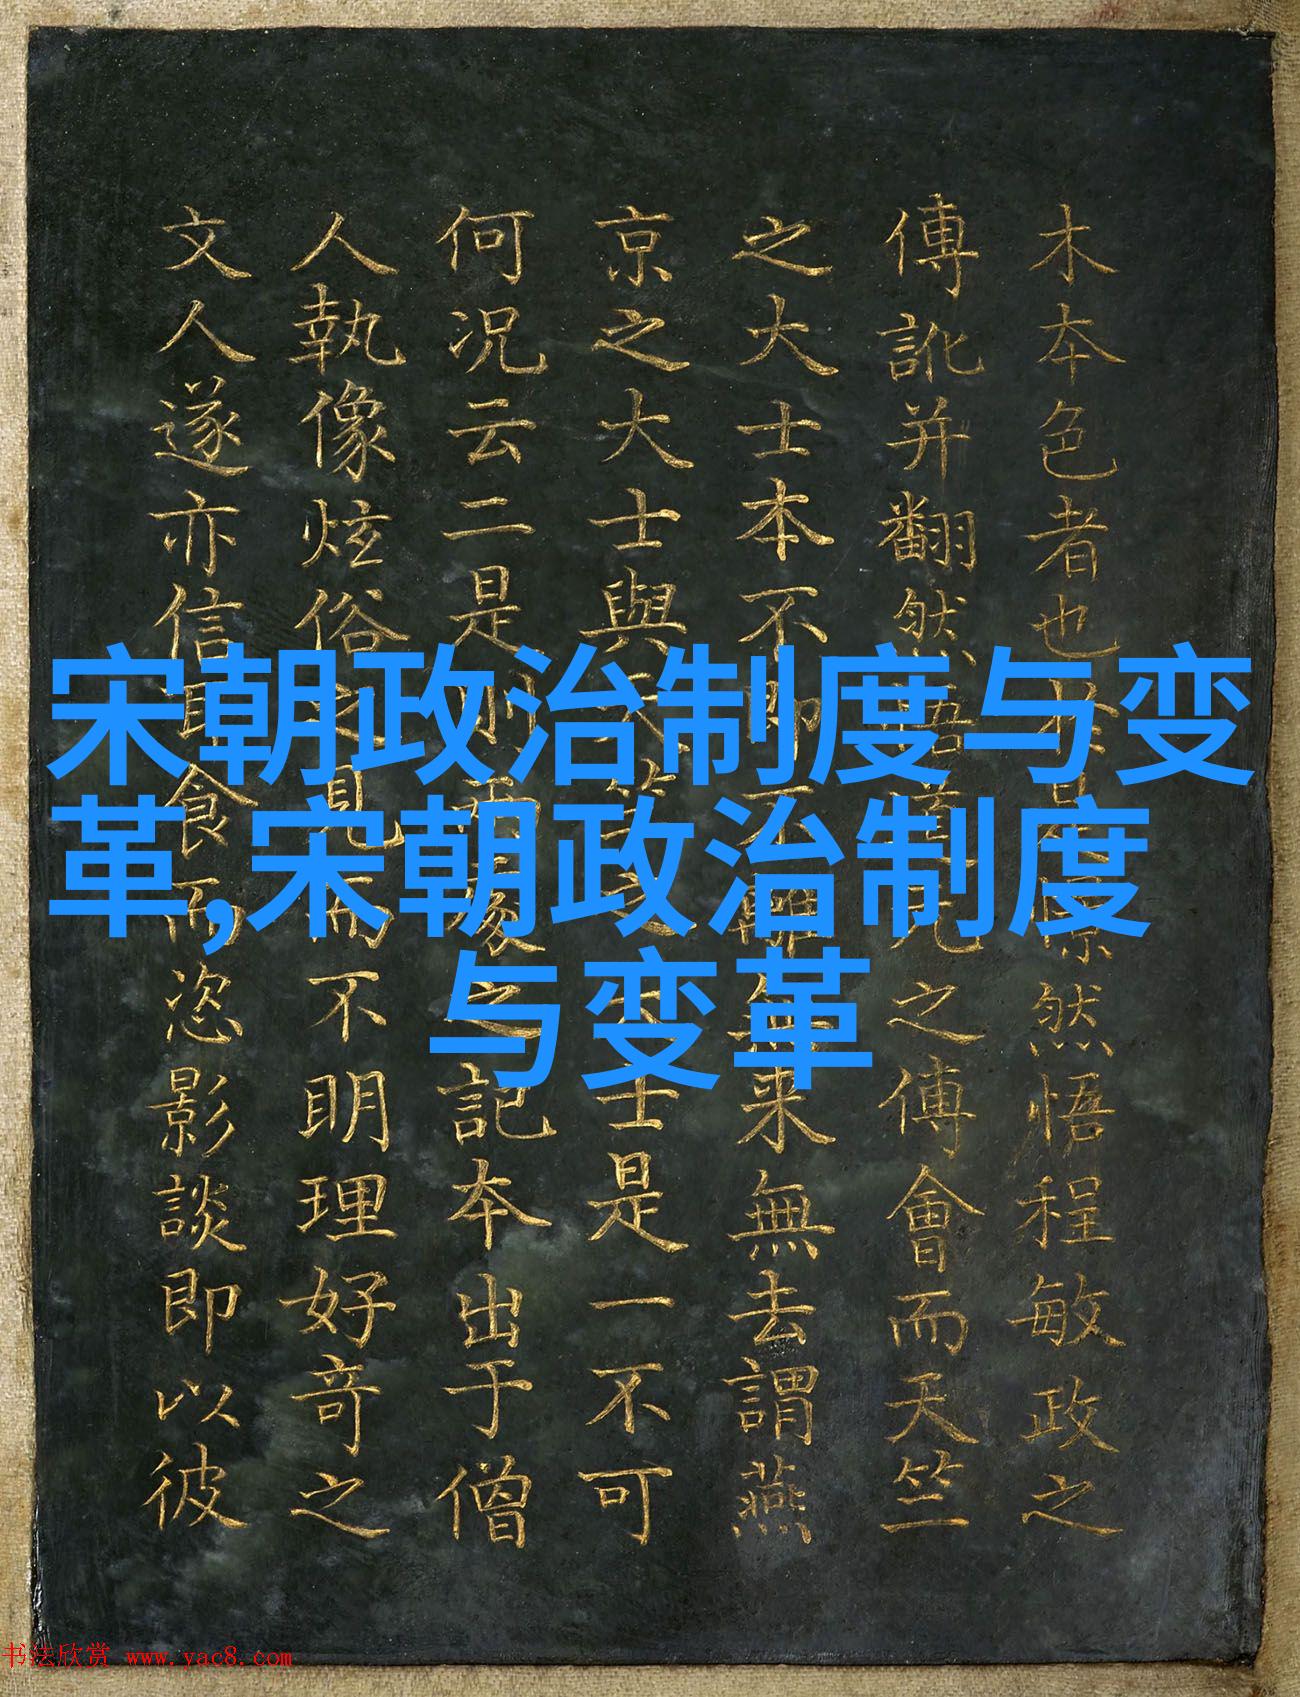 宋朝政治制度与变
革,宋朝政治制度
与变革
木本色者也然悟程敏政之
傳訛并翻然之傅會而天竺
之大士本不即不離無来無去謂燕
京之大士與大士是一不可
何况云二是則之記本出于僧
人執像炫俗見而不明理好奇之
文人遂亦信耳食而恣影談即以彼
书法欣赏 www.yac8.com